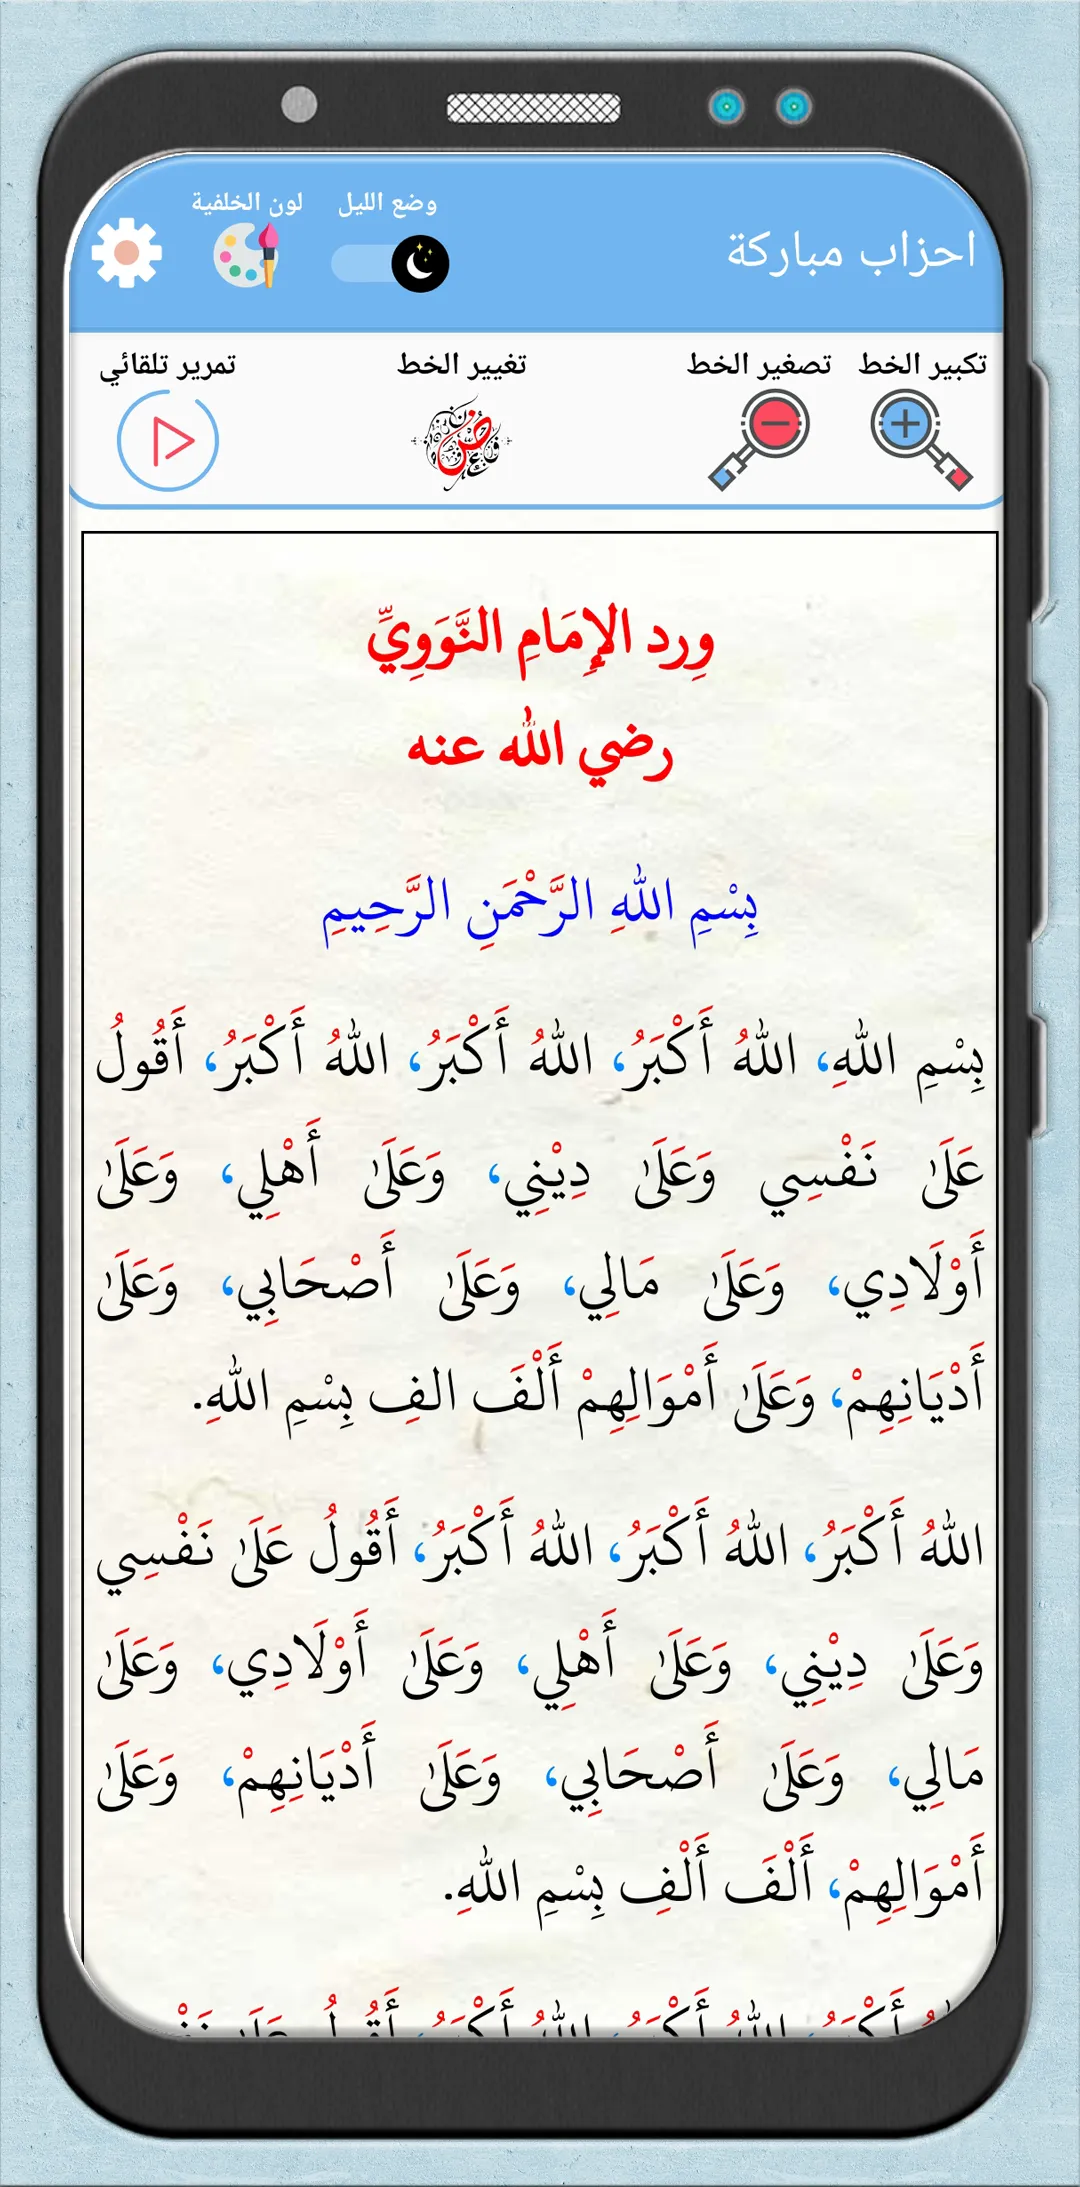 احزاب مباركة
وضع الليل
لون الخلفية
تكبير الخط
تصغير الخط
تغيير الخط
تمرير تلقائي
وِرد الإِمَامِ النَّوَوِيِّ
رضي الله عنه
بِسْمِ اللهِ الرَّحْمَنِ الرَّحِيمِ
بِسْمِ اللهِ، اللهُ أَكْبَرُ، اللهُ أَكْبَرُ، اللهُ أَكْبَرُ، أَقُولُ
عَلَىٰ نَفْسِي وَعَلَىٰ دِيْنِي، وَعَلَىٰ أَهْلِي، وَعَلَىٰ
أَوْلَادِي، وَعَلَىٰ مَالِي، وَعَلَىٰ أَصْحَابِي، وَعَلَىٰ
أَدْيَانِهِمْ، وَعَلَىٰ أَمْوَالِهِمْ أَلْفَ الفِ بِسْمِ اللهِ.
اللهُ أَكْبَرُ، اللهُ أَكْبَرُ، اللهُ أَكْبَرُ، أَقُولُ عَلَىٰ نَفْسِي
وَعَلَىٰ دِيْنِي، وَعَلَىٰ أَهْلِي، وَعَلَىٰ أَوْلَادِي، وَعَلَىٰ
مَالِي، وَعَلَىٰ أَصْحَابِي، وَعَلَىٰ أَدْيَانِهِمْ، وَعَلَىٰ
أَمْوَالِهِمْ، أَلْفَ أَلْفِ بِسْمِ اللهِ.